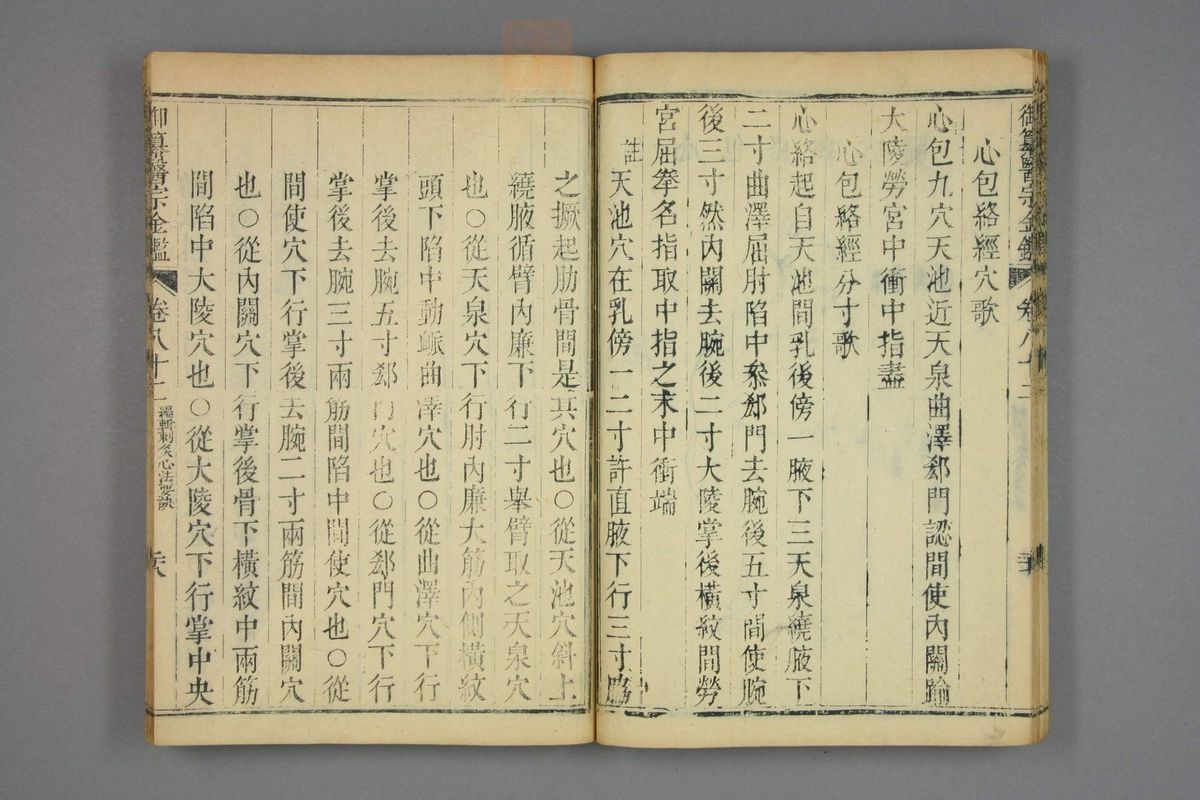 御纂醫宗金鑑 卷八十二
心包絡經穴歌
心包九穴天池近天泉曲澤郄門認間使內關踰
大陵勞宮中衝中指盡
心包絡經分寸歌
心絡起自天池間乳後傍一腋下三天泉繞腋下
二寸曲澤屈肘陷中叅郄門去腕後五寸間使腕
後三寸然內關去腕後二寸大陵掌後橫紋間勞
宮屈拳名指取中指之末中衝端
註天池穴在乳傍一二寸許直腋下行三寸脇
之撅起肋骨間是其穴也○從天池穴斜上
繞腋循臂內廉下行二寸舉臂取之天泉穴
也○從天泉穴下行肘內廉大筋內側橫紋
頭下陷中動脈曲澤穴也○從曲澤穴下行
掌後去腕五寸郄門穴也○從郄門穴下行
掌後去腕三寸兩筋間陷中間使穴也○從
間使穴下行掌後去腕二寸兩筋間內關穴
也○從內關穴下行掌後骨下橫紋中兩筋
間陷中大陵穴也○從大陵穴下行掌中央
御纂醫宗金鑑 卷八十二 編輯刺灸心法要訣 六